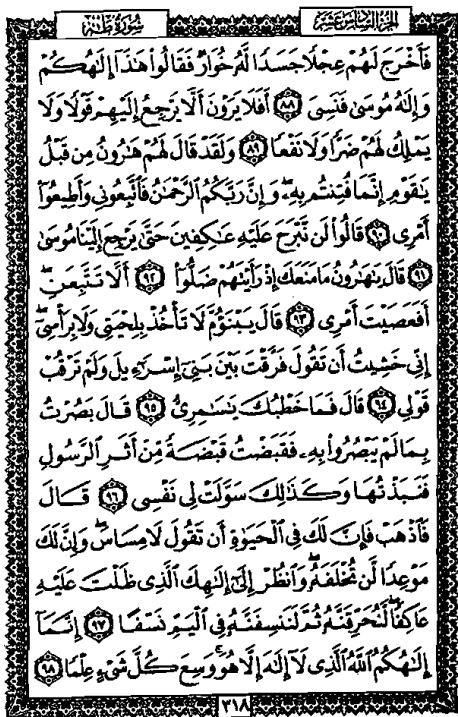 الجزء السادس عشر
سورة طه
فَأَخْرَجَ لَهُمْ عِجْلًا جَسَدًا لَّهُ خُوَارٌ فَقَالُوا هَٰذَا إِلَٰهُكُمْ
وَإِلَٰهُ مُوسَىٰ فَنَسِيَ ٨٨ أَفَلَا يَرَوْنَ أَلَّا يَرْجِعُ إِلَيْهِمْ قَوْلًا وَلَا
يَمْلِكُ لَهُمْ ضَرًّا وَلَا نَفْعًا ٨٩ وَلَقَدْ قَالَ لَهُمْ هَٰرُونُ مِن قَبْلُ
يَٰقَوْمِ إِنَّمَا فُتِنتُم بِهِۦ وَإِنَّ رَبَّكُمُ ٱلرَّحْمَٰنُ فَٱتَّبِعُونِي وَأَطِيعُوٓا
أَمْرِي ٩٠ قَالُوا لَن نَّبْرَحَ عَلَيْهِ عَٰكِفِينَ حَتَّىٰ يَرْجِعَ إِلَيْنَا مُوسَىٰ
٩١ قَالَ يَٰهَٰرُونُ مَا مَنَعَكَ إِذْ رَأَيْتَهُمْ ضَلُّوٓا ٩٢ أَلَّا تَتَّبِعَنِ
أَفَعَصَيْتَ أَمْرِي ٩٣ قَالَ يَبْنَؤُمَّ لَا تَأْخُذْ بِلِحْيَتِي وَلَا بِرَأْسِيٓ
إِنِّي خَشِيتُ أَن تَقُولَ فَرَّقْتَ بَيْنَ بَنِيٓ إِسْرَٰٓءِيلَ وَلَمْ تَرْقُبْ
قَوْلِي ٩٤ قَالَ فَمَا خَطْبُكَ يَٰسَٰمِرِيُّ ٩٥ قَالَ بَصُرْتُ
بِمَا لَمْ يَبْصُرُوا بِهِۦ فَقَبَضْتُ قَبْضَةً مِّنْ أَثَرِ ٱلرَّسُولِ
فَنَبَذْتُهَا وَكَذَٰلِكَ سَوَّلَتْ لِي نَفْسِي ٩٦ قَالَ
فَٱذْهَبْ فَإِنَّ لَكَ فِي ٱلْحَيَوٰةِ أَن تَقُولَ لَا مِسَاسَ وَإِنَّ لَكَ
مَوْعِدًا لَّن تُخْلَفَهُۥ وَٱنظُرْ إِلَىٰٓ إِلَٰهِكَ ٱلَّذِي ظَلْتَ عَلَيْهِ
عَاكِفًا لَّنُحَرِّقَنَّهُۥ ثُمَّ لَنَنسِفَنَّهُۥ فِي ٱلْيَمِّ نَسْفًا ٩٧ إِنَّمَآ
إِلَٰهُكُمُ ٱللَّهُ ٱلَّذِي لَآ إِلَٰهَ إِلَّا هُوَ وَسِعَ كُلَّ شَيْءٍ عِلْمًا ٩٨
٣١٨